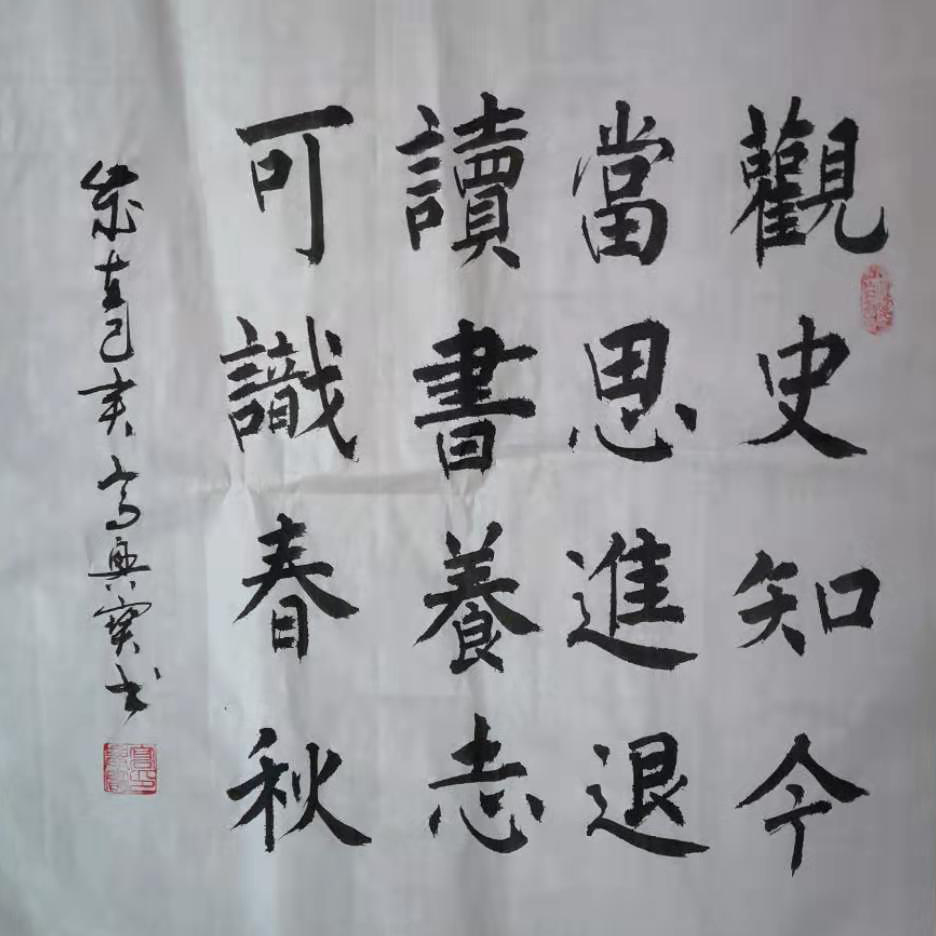 觀史知今
當思進退
讀書養志
可識春秋
歲在己亥高興寶书